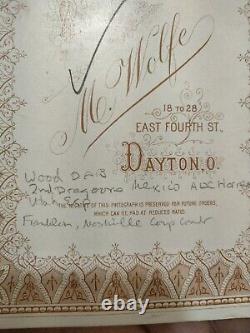 M. Wolfe
18 TO 28
EAST FOURTH ST.,
DAYTON, O.
Wood D & B
2nd Dragoons Mexico
THE NEGATIVE OF THIS PHOTOGRAPH IS PRESERVED FOR FUTURE ORDERS,
WHICH CAN BE HAD AT REDUCED RATES
Franklin, Nashville Corp Comdr
ebay